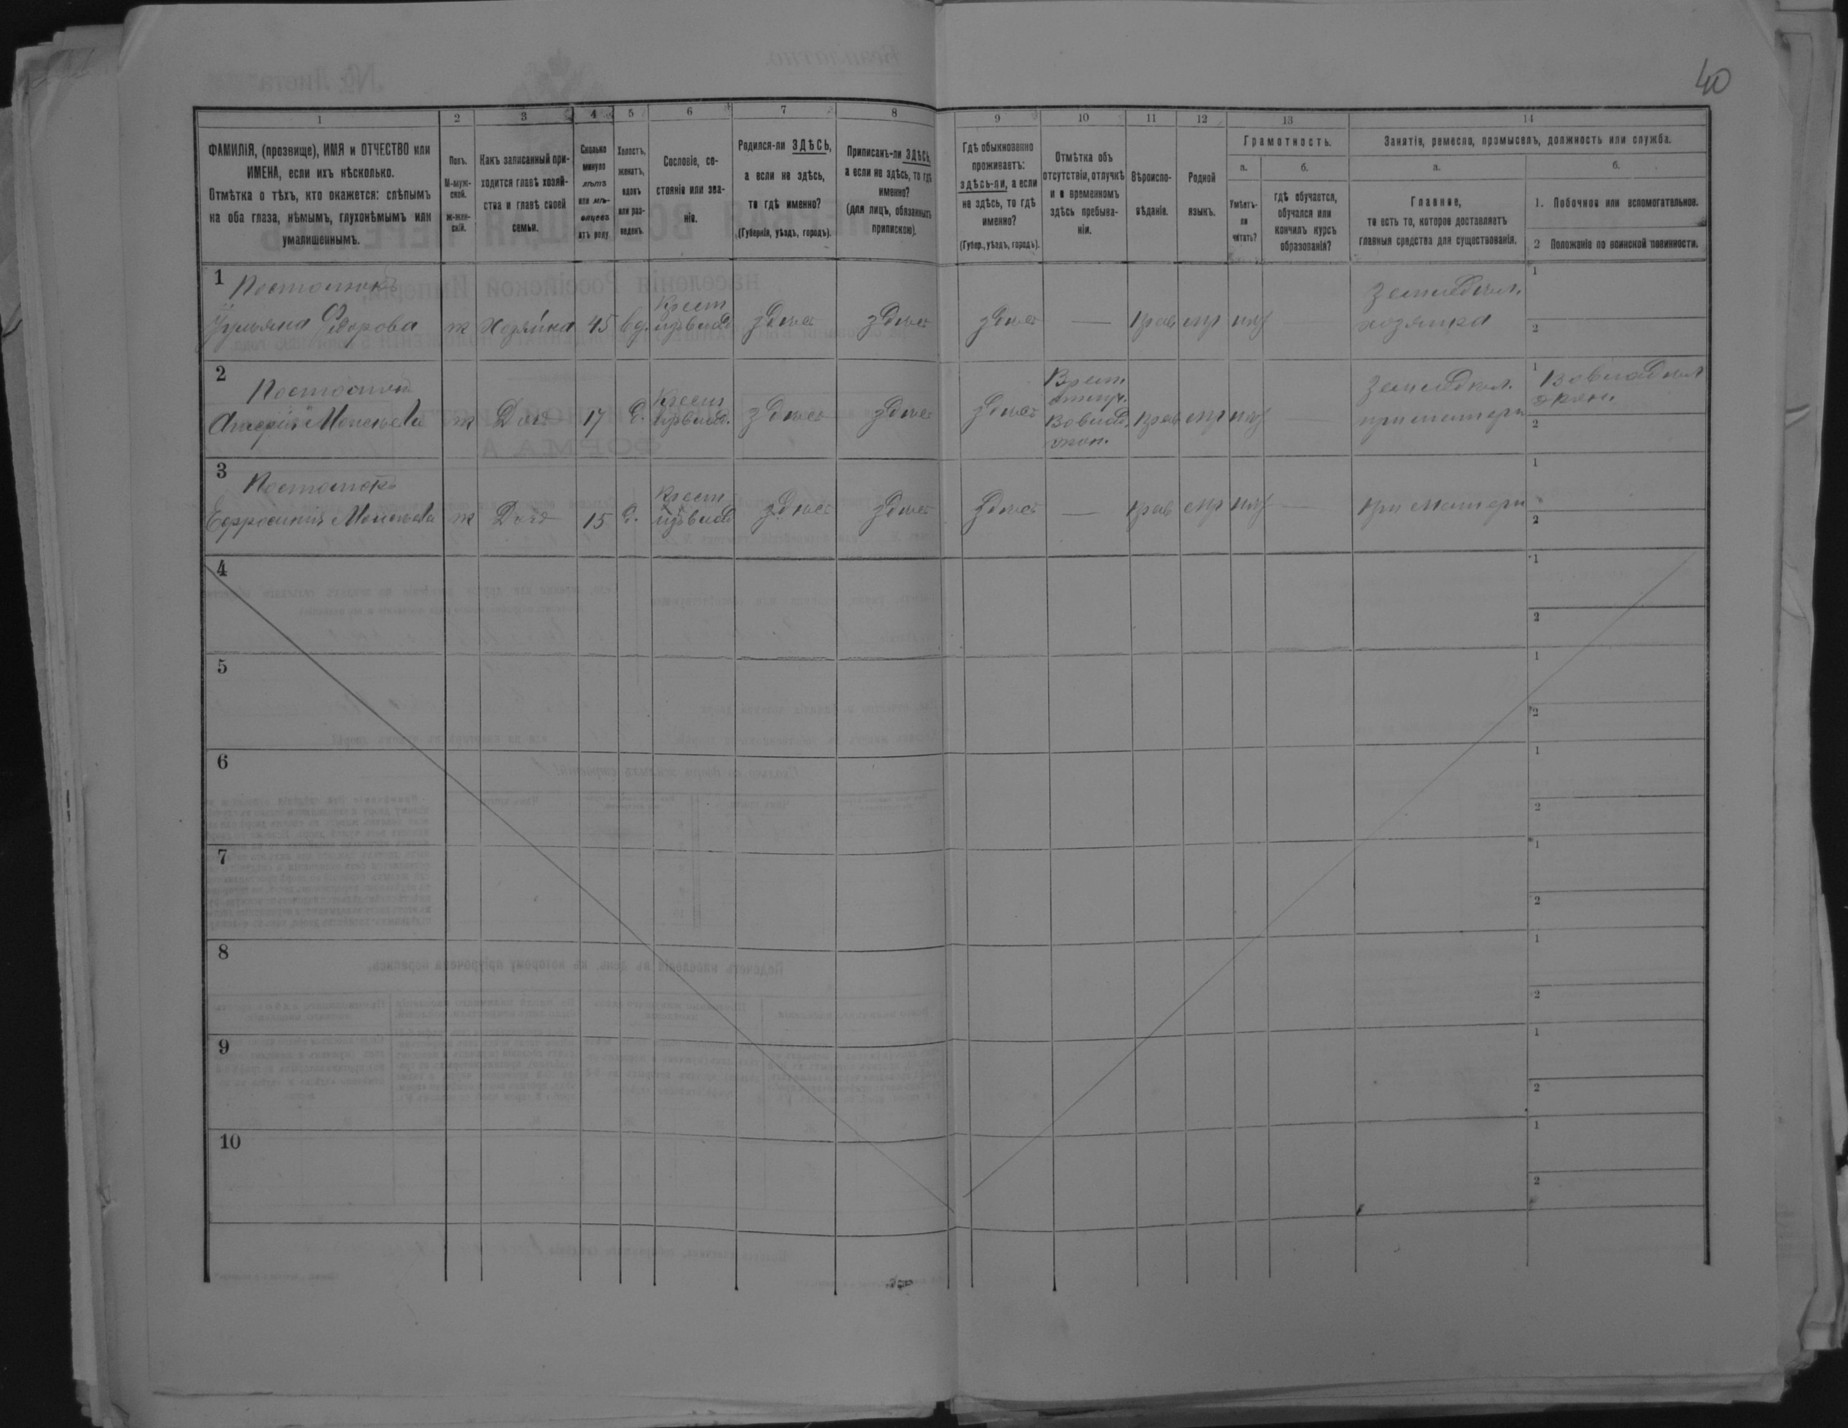 40
1
2
3
4
5
6
7
8
9
10
11
12
13
14
ФАМИЛІЯ, (прозвище), ИМЯ и ОТЧЕСТВО или
ИМЕНА, если ихъ нѣсколько.
Отмѣтка о тѣхъ, кто окажется: слѣпымъ
на оба глаза, нѣмымъ, глухонѣмымъ или
умалишеннымъ.
Полъ.
М-муж-
ской.
ж-жен-
скій.
Какъ записанный при-
ходится главѣ хозяй-
ства и главѣ своей
семьи.
Сколько
минуло
лѣтъ
или мѣ-
сяцевъ
отъ роду.
Холостъ,
женатъ,
вдовъ
или раз-
веденъ.
Сословіе, со-
стояніе или зва-
ніе.
Родился-ли ЗДѢСЬ,
а если не здѣсь,
то гдѣ именно?
(Губернія, уѣздъ, городъ).
Приписанъ-ли ЗДѢСЬ,
а если не здѣсь, то гдѣ
именно?
(для лицъ, обязанныхъ
припискою).
Гдѣ обыкновенно
проживаетъ:
здѣсь-ли, а если
не здѣсь, то гдѣ
именно?
(Губер., уѣздъ, городъ).
Отмѣтка объ
отсутствіи, отлучкѣ
и о временномъ
здѣсь пребыва-
ніи.
Вѣроиспо-
вѣданіе.
Родной
языкъ.
Грамотность.
а.
Умѣетъ-
ли
читать?
б.
гдѣ обучается,
обучался или
кончилъ курсъ
образованія?
Занятіе, ремесло, промыселъ, должность или служба.
а.
Главное,
то есть то, которое доставляетъ
главныя средства для существованія.
б.
1. Побочное или вспомогательное.
2 Положеніе по воинской повинности.
1
Федорова ж Хозяйка 45 вд. Крест. здѣсь здѣсь здѣсь — прав мр нѣт — Земледѣл. хозяйка
1
2
2
Моисеева ж Дочь 17 д. Крест. здѣсь здѣсь здѣсь прав мр нѣт — Земледѣл. при матери
1
2
3
Ефросинія Моисеева ж Дочь 15 д. Крест. здѣсь здѣсь здѣсь — прав мр нѣт — при матери
1
2
4
1
2
5
1
2
6
1
2
7
1
2
8
1
2
9
1
2
10
1
2